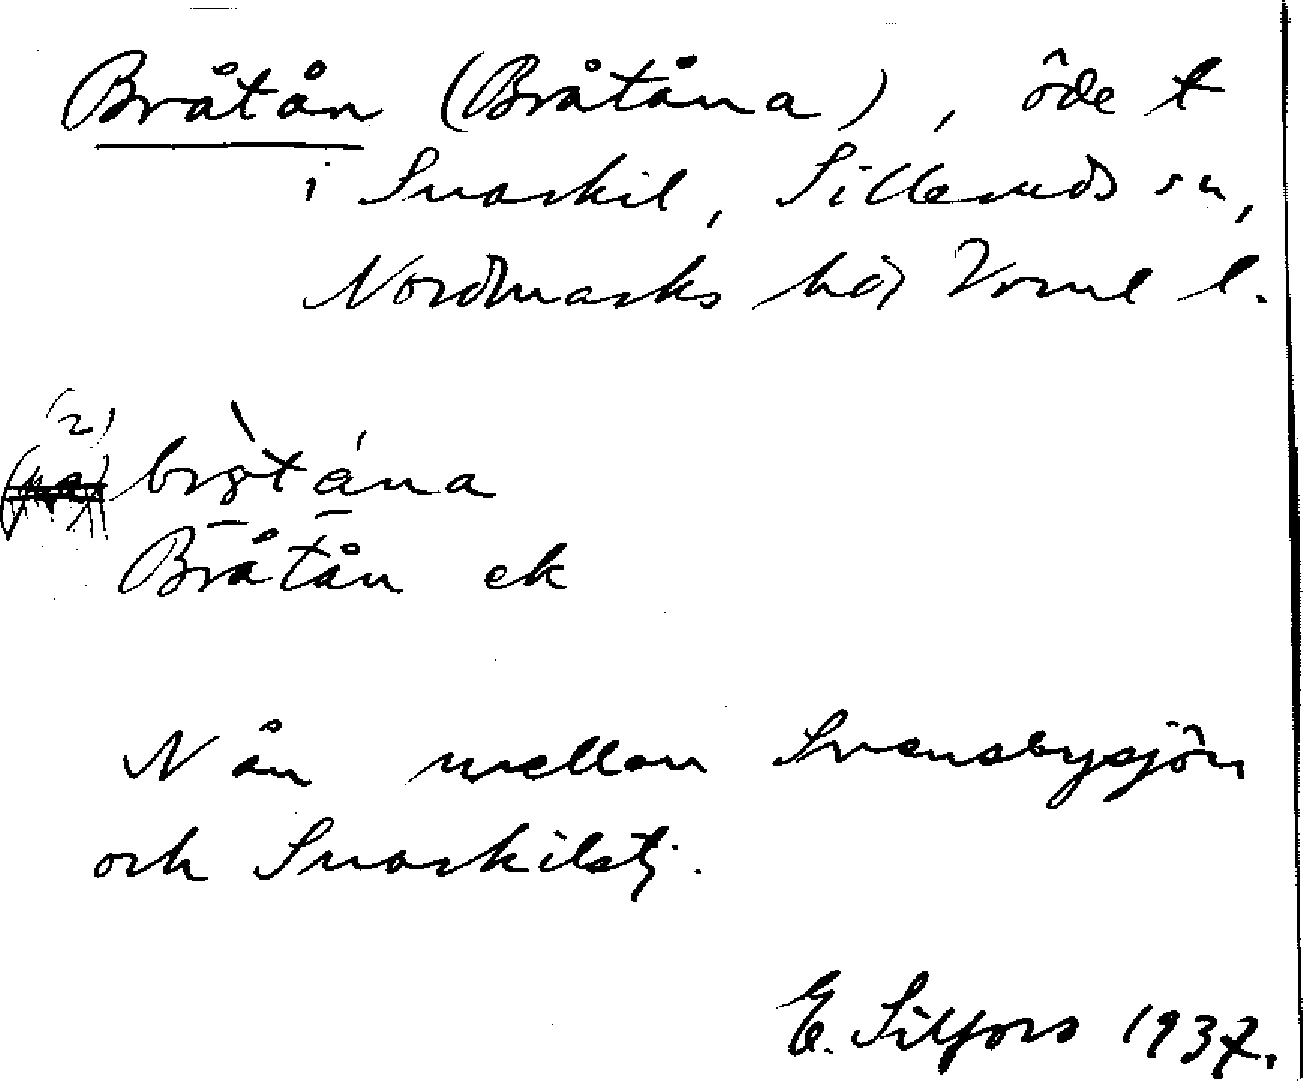 Bråtån (Bråtåna), öde t
i Snarkil, Silleruds sn,
Nordmarks hd, Värml l.
(2)
Bråtån ek
N ån mellan Svensbysjön
och Snarkilstj.
E. Silfors 1937.